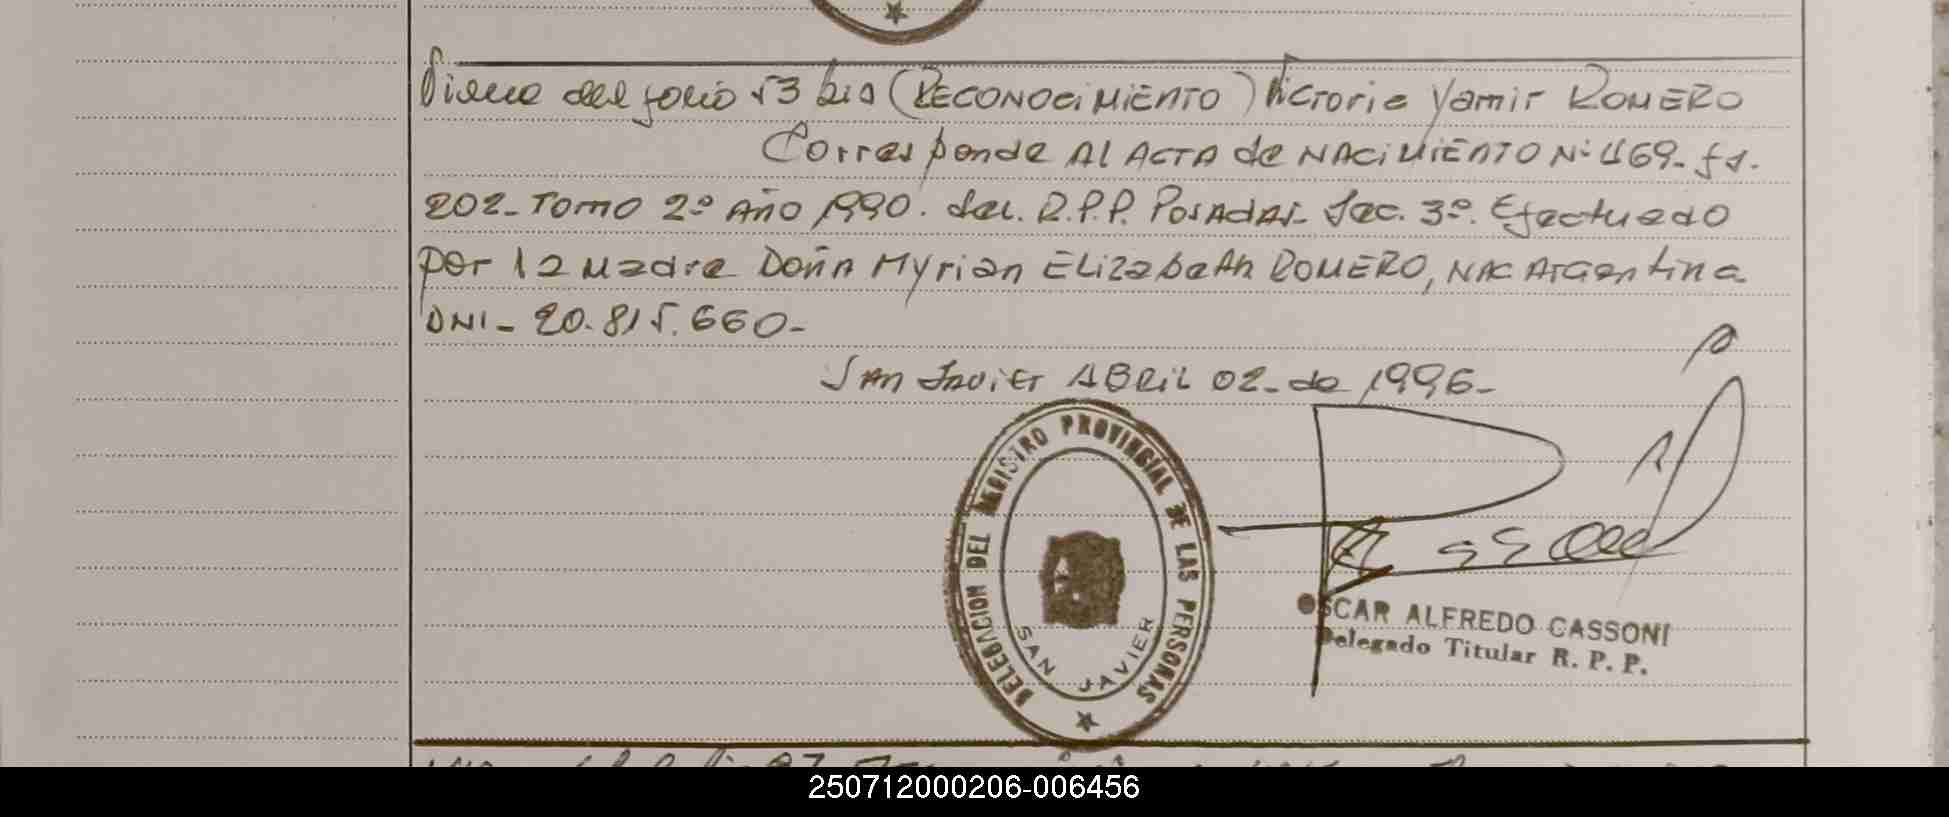 Viene del folio 53 bis (RECONOCiMiENTO) Victoria Yamir ROMERO
Corresponde Al ACTA de NACiMiENTO Nº 469- fs.
202- Tomo 2º Año 1990. del. R.P.P. POSADAS- Sec. 3º. Efectuado
por la Madre Doña Myrian ELizabeth ROMERO, NAC Argentina
DNI- 20.815.660-
SAn Javier ABRiL 02- de 1996-
DELEGACION DEL REGISTRO PROVINCIAL DE LAS PERSONAS
SAN JAVIER
OSCAR ALFREDO CASSONI
Delegado Titular R. P. P.
250712000206-006456